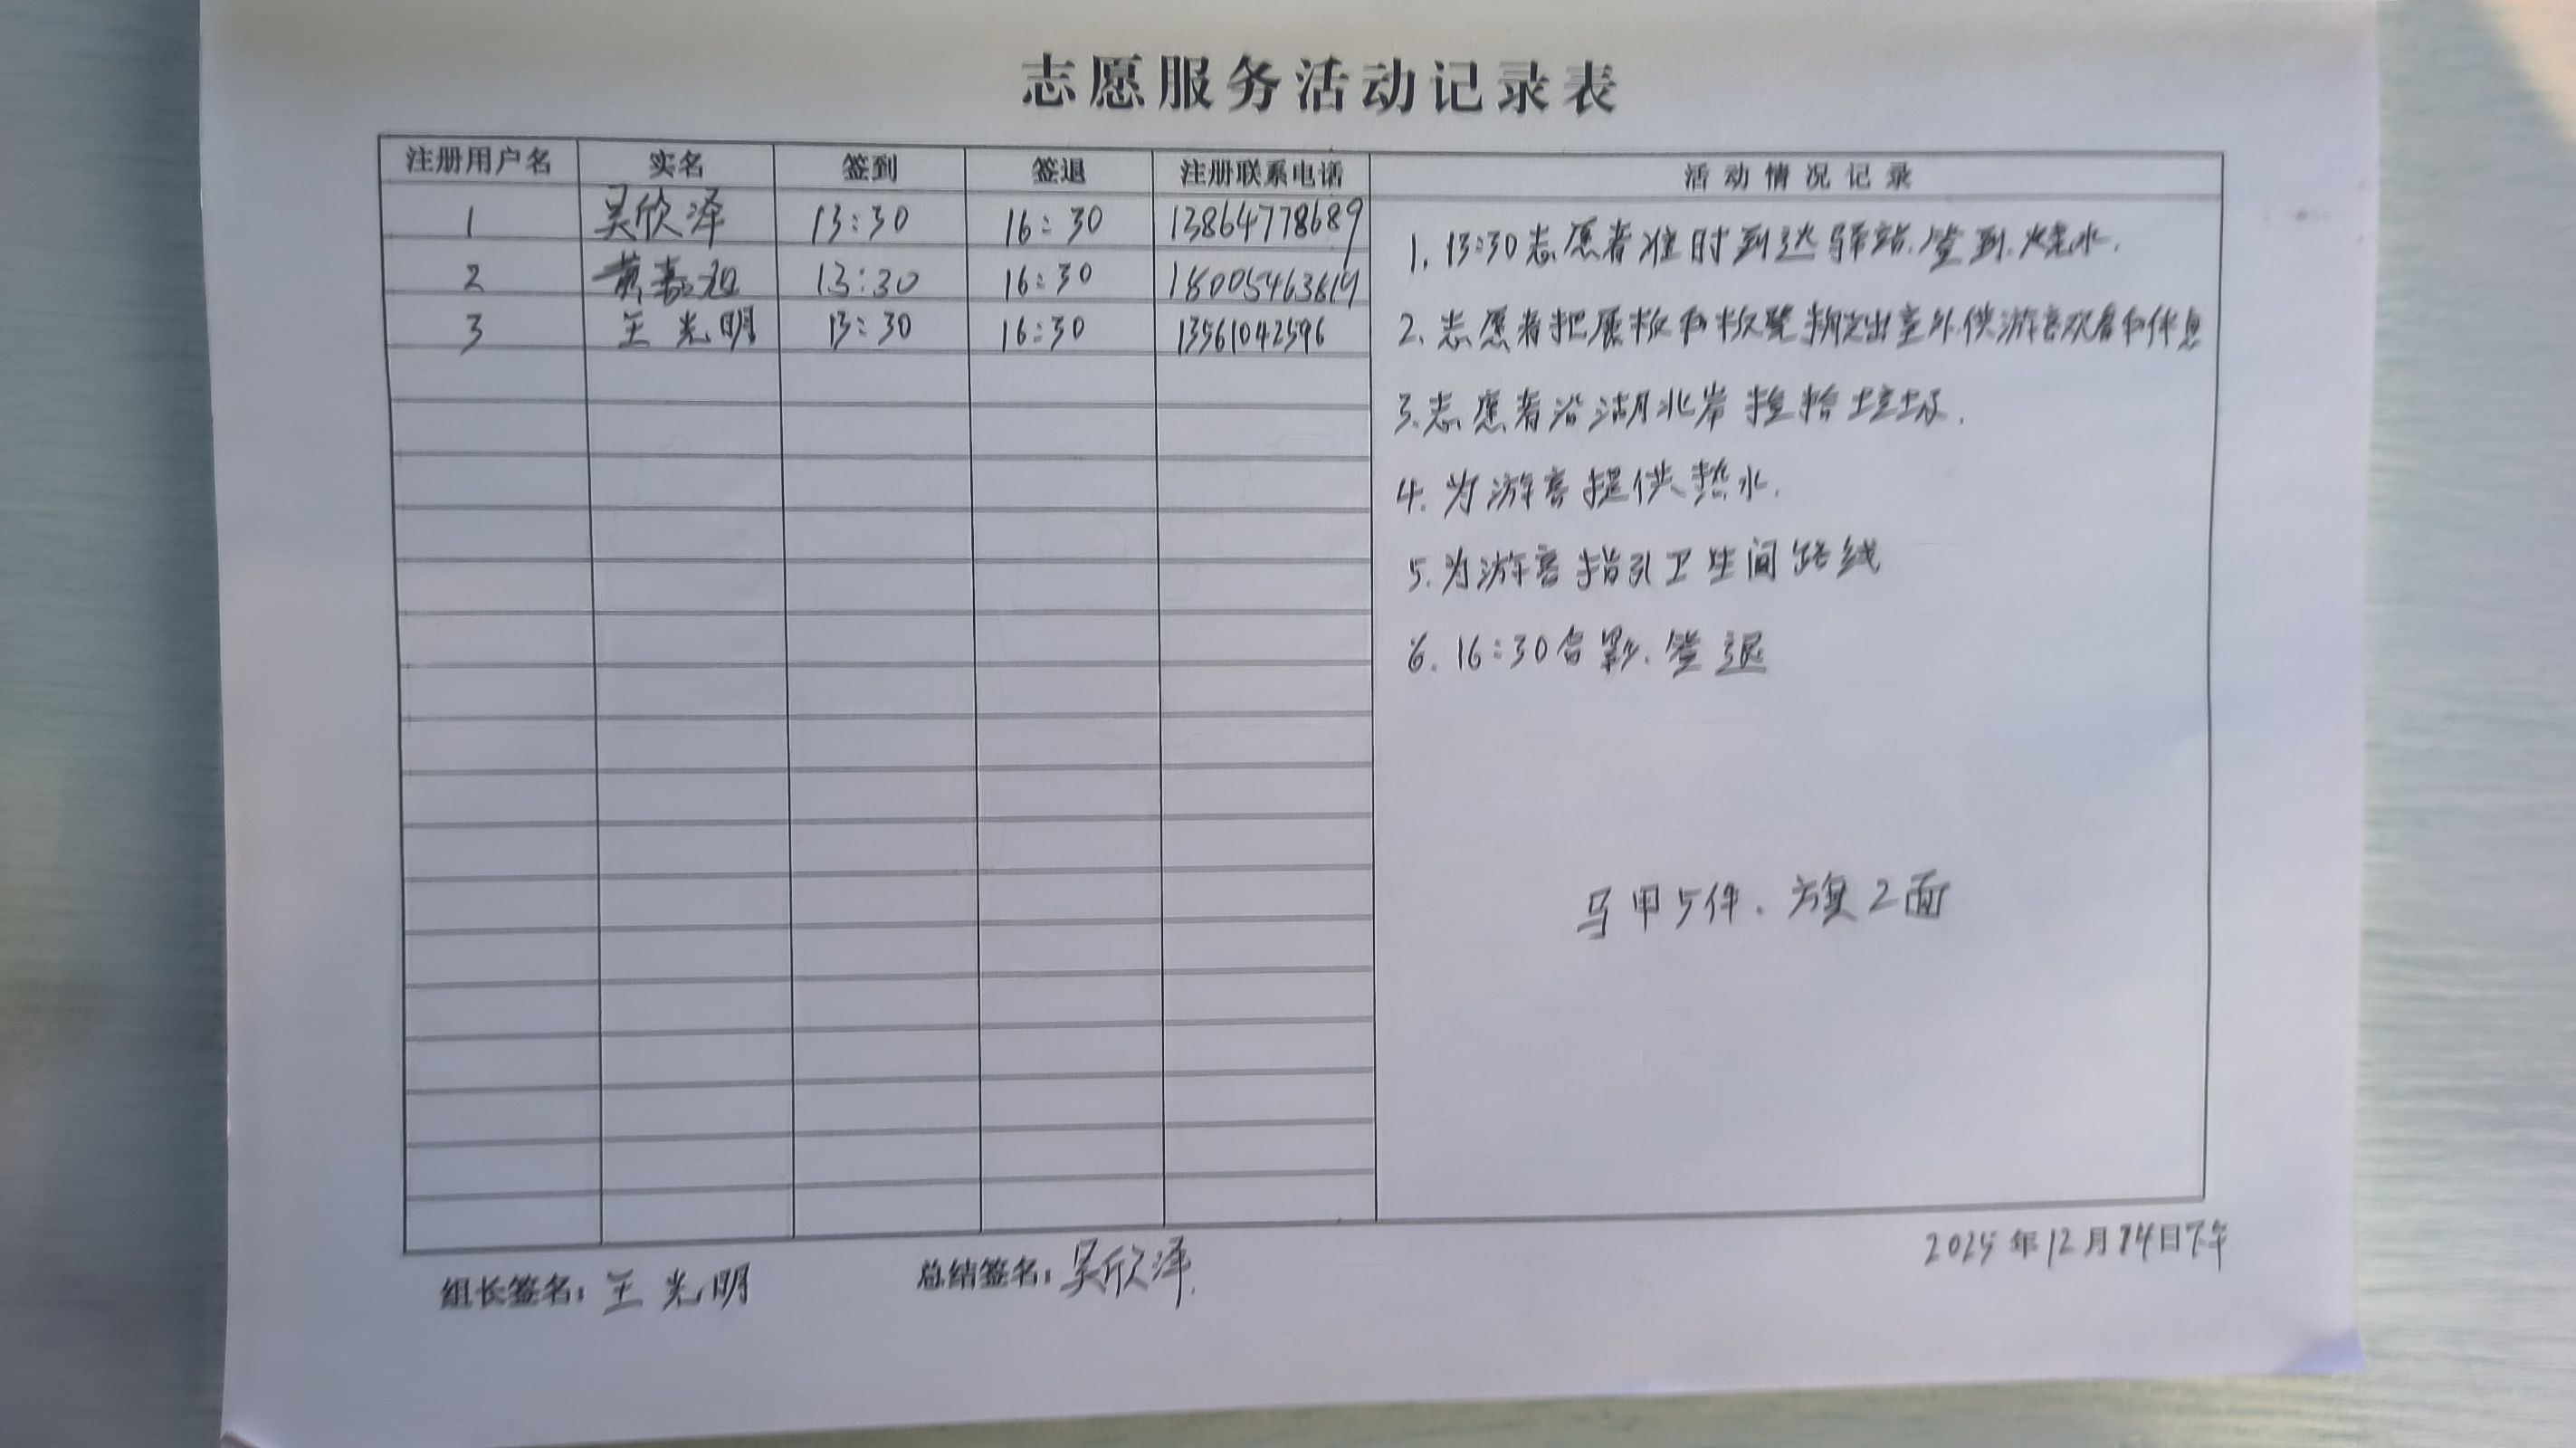 志愿服务活动记录表
注册用户名 实名 签到 签退 注册联系电话 活动情况记录
1 吴欣泽 13:30 16:30 13864778689
2 黄 13:30 16:30
3 王光明 13:30 16:30 13561042596
1. 13:30志愿者准时到达驿站.签到.烧水.
2. 志愿者把展板和板凳搬出室外.供游客观看和休息
3.志愿者沿湖北岸捡拾垃圾.
4.为游客提供热水.
5.为游客指引卫生间路线
6. 16:30合影.签退
马甲5件.旗2面
组长签名:王光明 总结签名:吴欣泽.
2025年12月14日下午